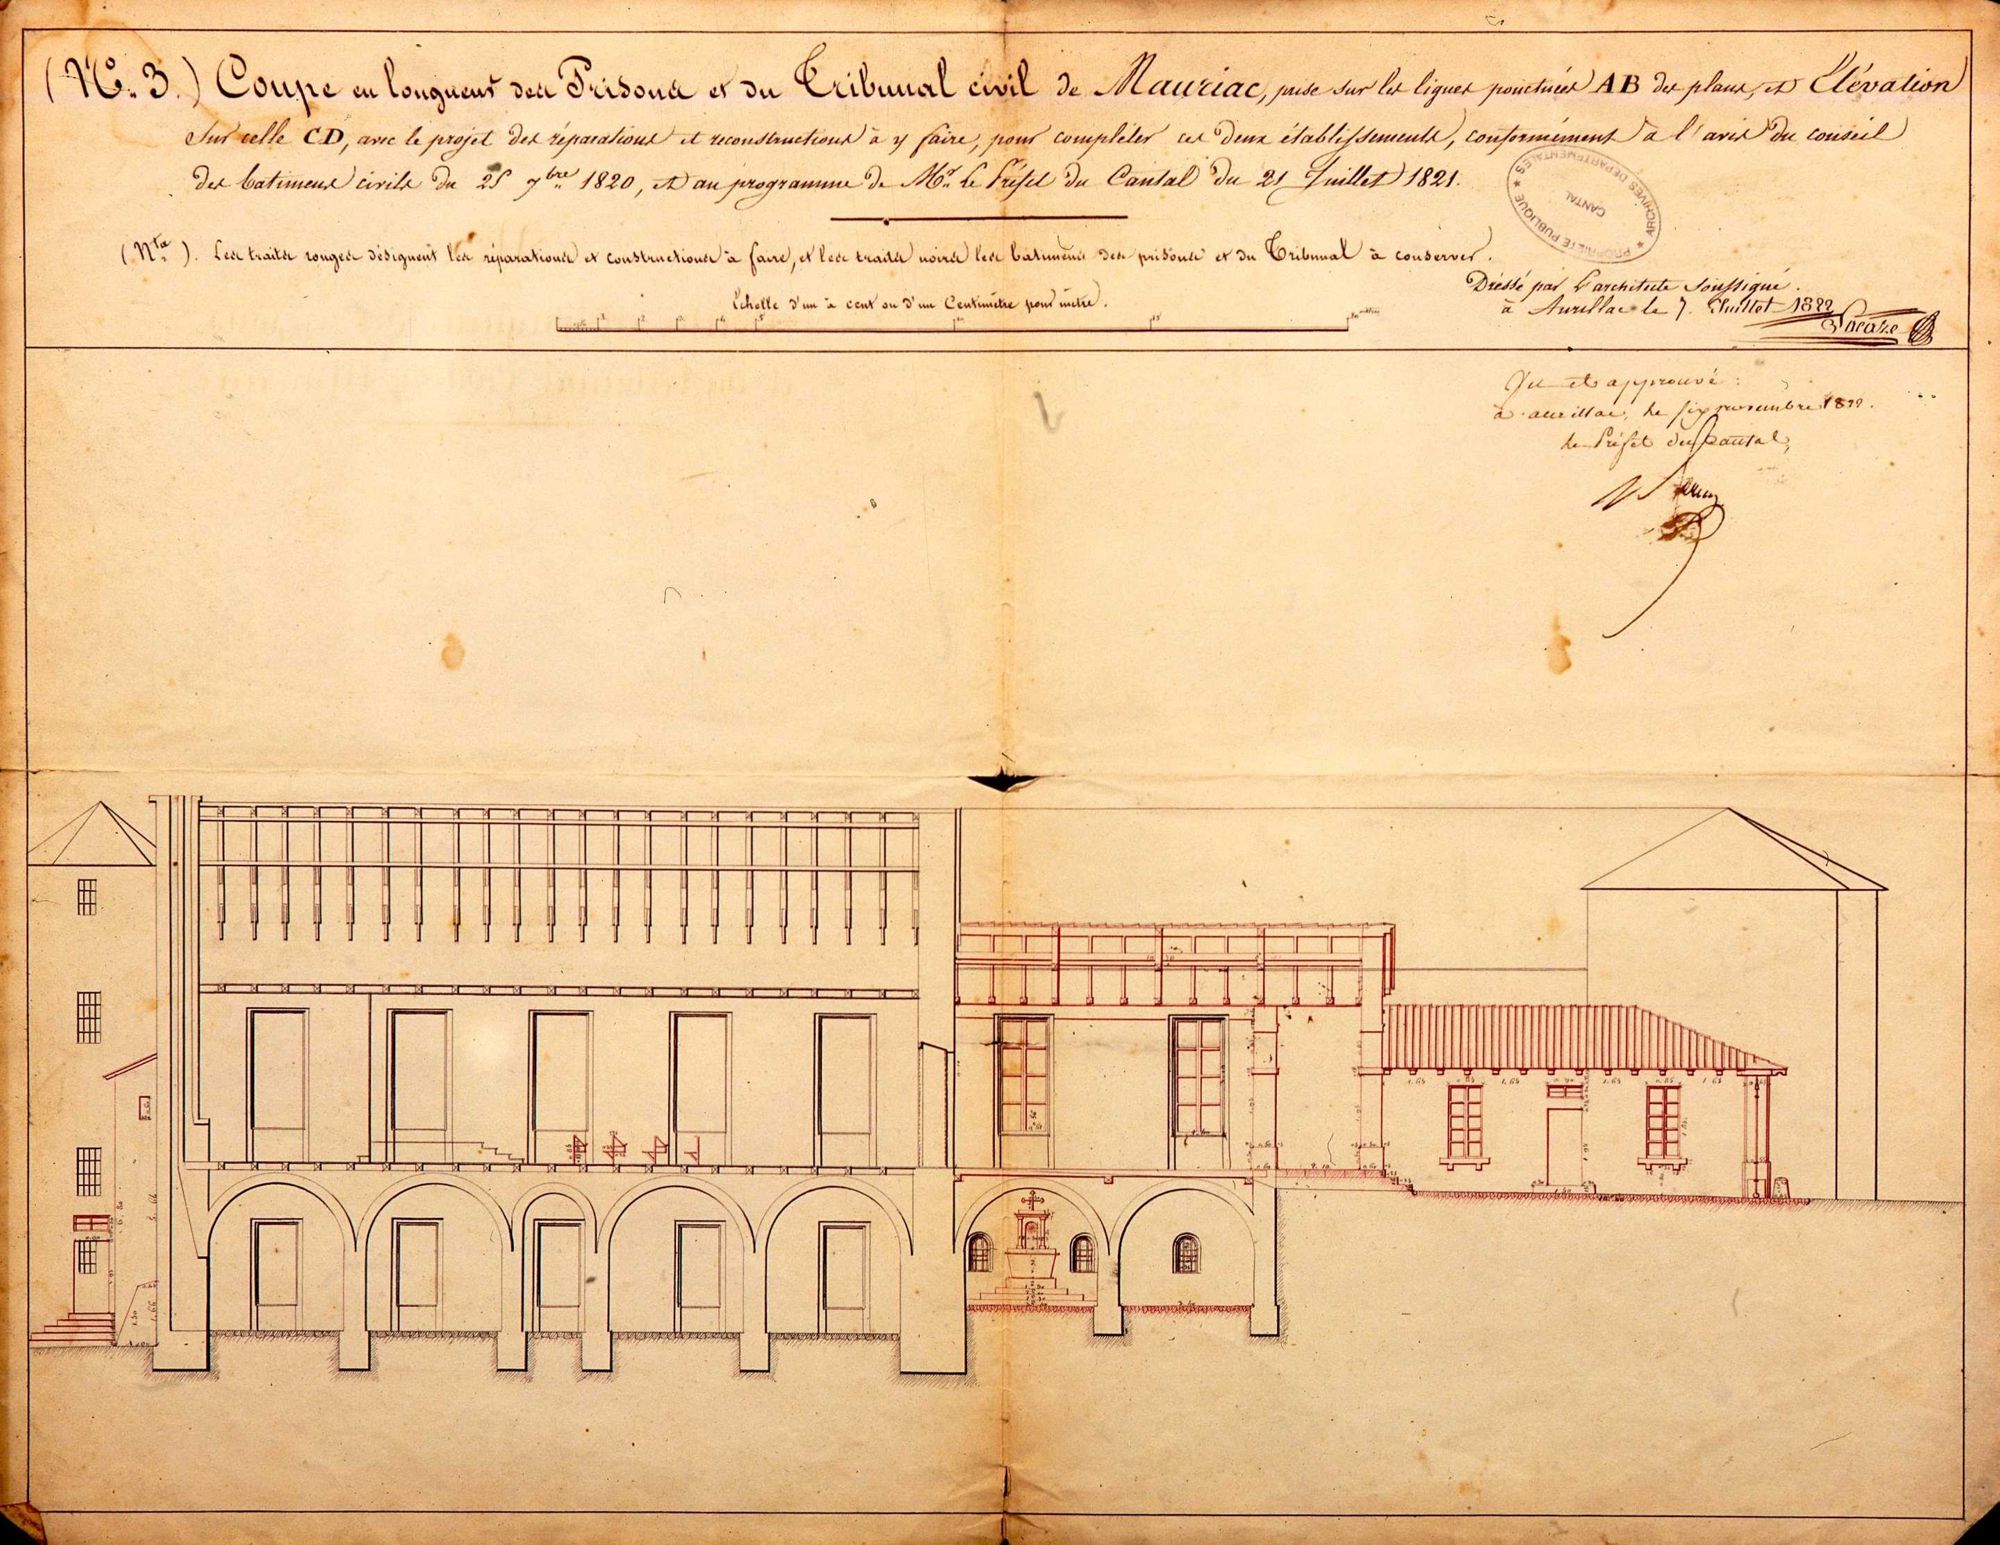 (N.° 3.) Coupe en longueur des Prisons et du Tribunal civil de Mauriac, prise sur les lignes ponctuées AB des plans, et Elévation
sur celle CD, avec le projet des réparations et reconstructions à y faire, pour compléter ces deux établissements, conformément à l'avis du conseil
des batimens civils du 25 7bre 1820, et au programme de Mr. le Préfet du Cantal du 21 Juillet 1821.
(Nta). Les traits rouges désignent les réparations et constructions à faire, et les traits noirs les batimens des prisons et du Tribunal à conserver.
Echelle d'un à cent ou d'un Centimètre pour mètre.
PROPRIÉTÉ PUBLIQUE ★ ARCHIVES DÉPARTEMENTALES ★
CANTAL
Dressé par l'architecte soussigné.
à Aurillac le 7. Juillet 1822
Vu et approuvé :
à aurillac, le six novembre 1822.
le Préfet du Cantal,
1.65
1.65
1.65
1.65